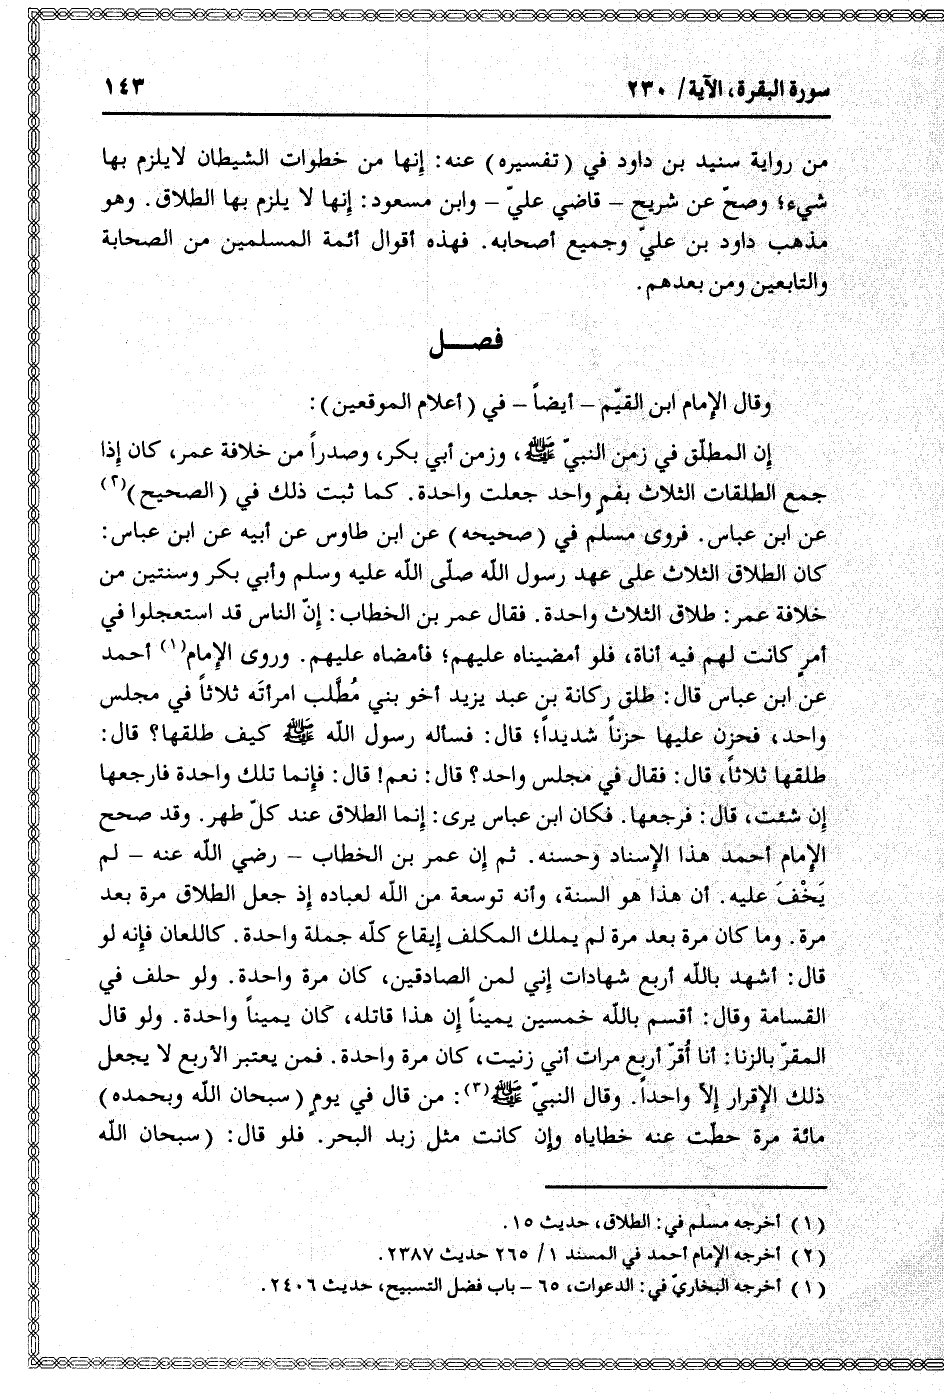 سورة البقرة، الآية/ ٢٣٠
١٤٣
من رواية سنيد بن داود في (تفسيره) عنه: إنها من خطوات الشيطان لايلزم بها
شيء؛ وصحّ عن شريح – قاضي عليّ – وابن مسعود: إنها لا يلزم بها الطلاق. وهو
مذهب داود بن عليّ وجميع أصحابه. فهذه أقوال أئمة المسلمين من الصحابة
والتابعين ومن بعدهم.
فصـــل
وقال الإمام ابن القيّم – أيضاً – في (أعلام الموقعين):
إن المطلّق في زمن النبيّ ﷺ، وزمن أبي بكر، وصدراً من خلافة عمر، كان إذا
جمع الطلقات الثلاث بفمٍ واحد جعلت واحدة. كما ثبت ذلك في (الصحيح)(٢)
عن ابن عباس. فروى مسلم في (صحيحه) عن ابن طاوس عن أبيه عن ابن عباس:
كان الطلاق الثلاث على عهد رسول اللّه صلّى اللّه عليه وسلم وأبي بكر وسنتين من
خلافة عمر: طلاق الثلاث واحدة. فقال عمر بن الخطاب: إنّ الناس قد استعجلوا في
أمرٍ كانت لهم فيه أناة، فلو أمضيناه عليهم؛ فأمضاه عليهم. وروى الإمام(١) أحمد
عن ابن عباس قال: طلق ركانة بن عبد يزيد أخو بني مُطَّلب امرأتَه ثلاثاً في مجلس
واحد، فحزن عليها حزناً شديداً؛ قال: فسأله رسول اللّه ﷺ كيف طلقها؟ قال:
طلقها ثلاثاً، قال: فقال في مجلس واحد؟ قال: نعم! قال: فإنما تلك واحدة فارجعها
إن شئت، قال: فرجعها. فكان ابن عباس يرى: إنما الطلاق عند كلّ طهر. وقد صحح
الإمام أحمد هذا الإسناد وحسنه. ثم إن عمر بن الخطاب – رضي اللّه عنه – لم
يَخْفَ عليه. أن هذا هو السنة، وأنه توسعة من اللّه لعباده إذ جعل الطلاق مرة بعد
مرة. وما كان مرة بعد مرة لم يملك المكلف إيقاع كلّه جملة واحدة. كاللعان فإنه لو
قال: أشهد باللّه أربع شهادات إني لمن الصادقين، كان مرة واحدة. ولو حلف في
القسامة وقال: أقسم باللّه خمسين يميناً إن هذا قاتله، كان يميناً واحدة. ولو قال
المقرّ بالزنا: أنا أُقرّ أربع مرات أني زنيت، كان مرة واحدة. فمن يعتبر الأربع لا يجعل
ذلك الإقرار إلاّ واحداً. وقال النبيّ ﷺ(٣): من قال في يومٍ (سبحان اللّه وبحمده)
مائة مرة حطّت عنه خطاياه وإن كانت مثل زبد البحر. فلو قال: (سبحان اللّه
(١) أخرجه مسلم في: الطلاق، حديث ١٥.
(٢) أخرجه الإمام أحمد في المسند ١/ ٢٦٥ حديث ٢٣٨٧.
(١) أخرجه البخاريّ في: الدعوات، ٦٥ – باب فضل التسبيح، حديث ٢٤٠٦.